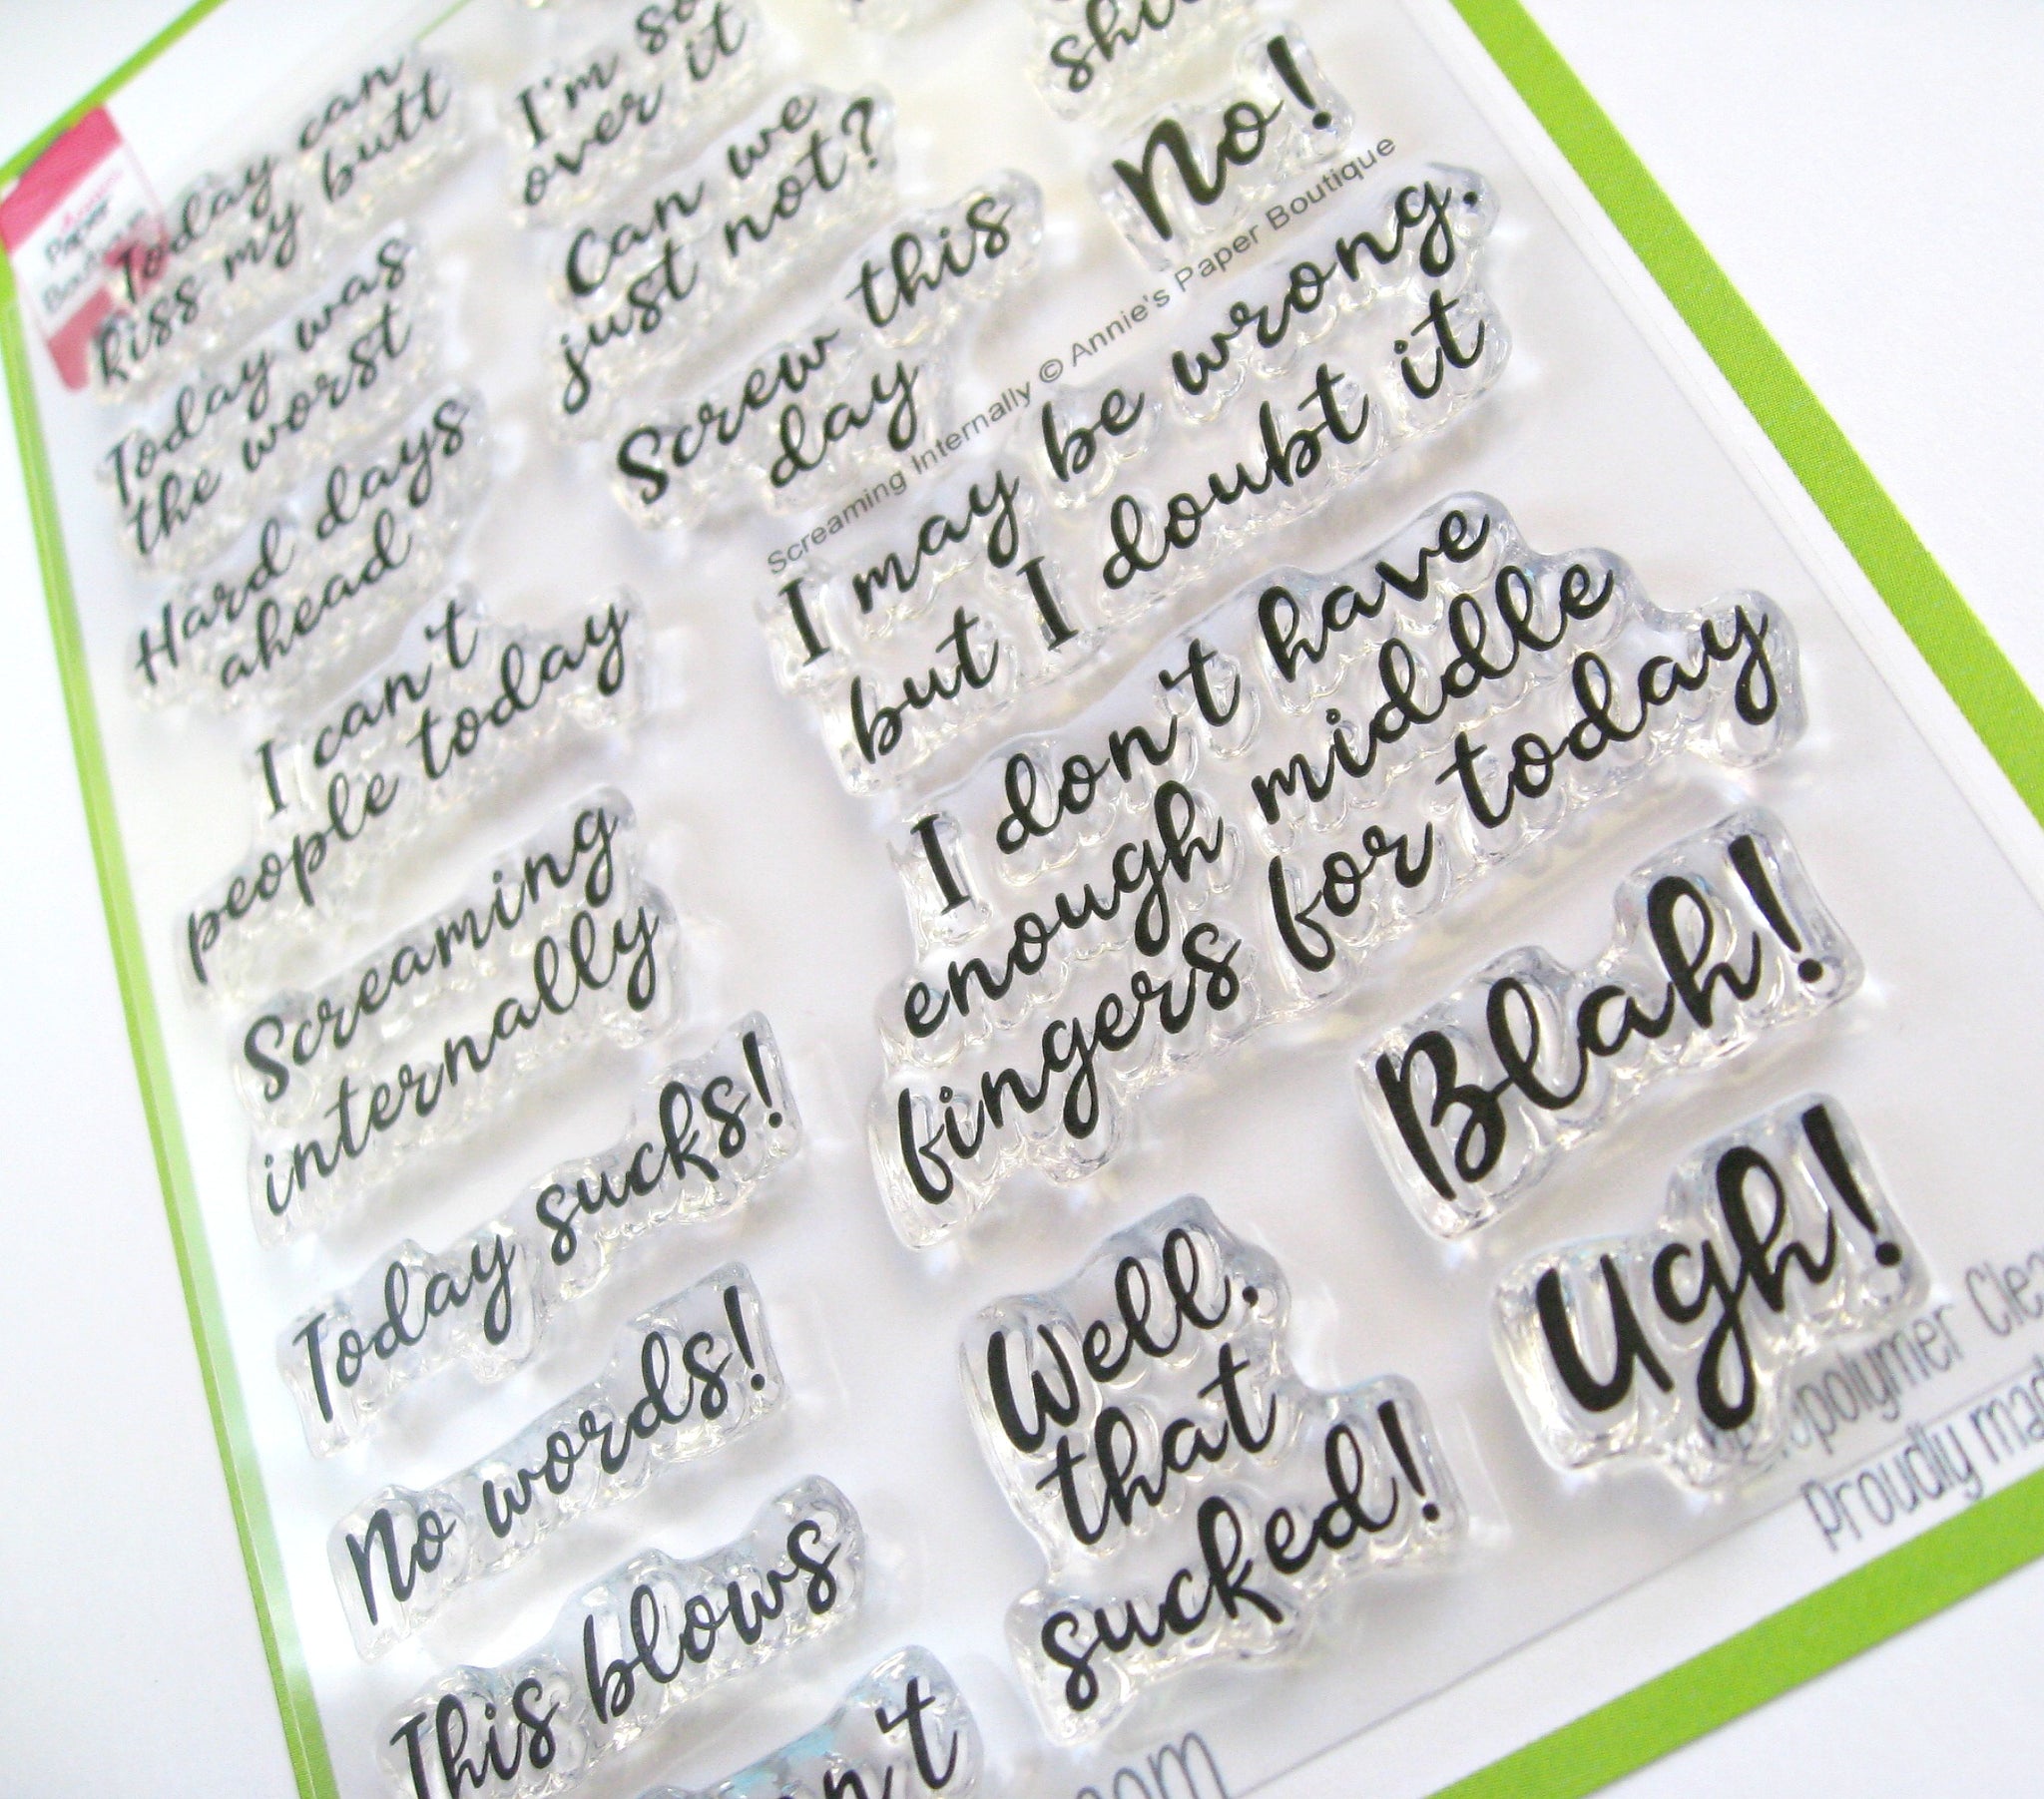 Today can
kiss my butt
Today was
the worst
Hard days
ahead
I can't
people today
Screaming
internally
Today sucks!
No words!
This blows
I'm so
over it
Can we
just not?
Screw this
day
No!
Screaming Internally © Annie's Paper Boutique
I may be wrong.
but I doubt it
I don't have
enough middle
fingers for today
Blah!
Ugh!
Well,
that
sucked!
Proudly
Paper